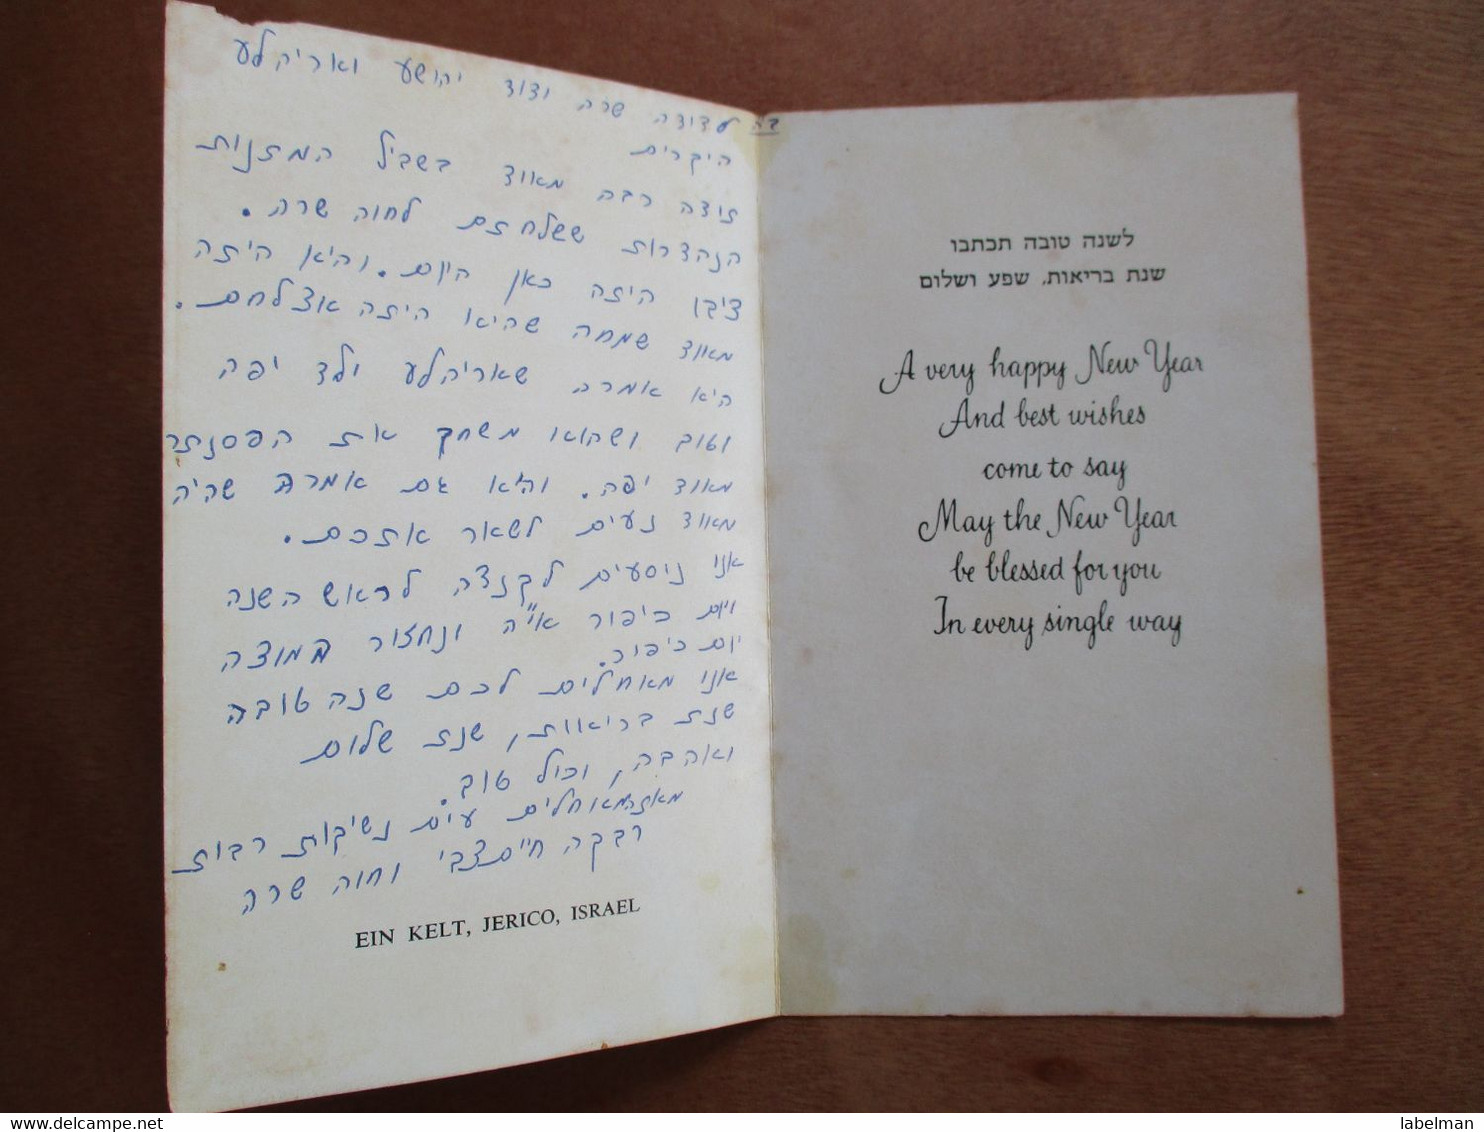 בה
לדודה שרה ודוד יהושע ואריהלע
היקרים
תודה רבה מאוד בשביל המתנות
הנהדרות ששלחתם לחוה שרה.
ציבן היתה כאן היום. והיא היתה
מאוד שמחה שהיא היתה אצלחם.
היא אמרה שאריהלע ילד יפה
וטוב ושהוא משחק את הפסנתר
מאוד יפה. והיא גם אמרה שהיה
מאוד נעים לשאר אתכם.
אני נוסעים לקנדה לראש השנה
ויום כיפור אי"ה ונחזור במוצה
יום כיפור.
אני מאחלים לכם שנה טובה
שנת בריאות, שנת שלום
ואהבה, וכול טוב.
מאוחלים עים נשיקות רבות
רבקה חיים צבי וחוה שרה
EIN KELT, JERICO, ISRAEL
לשנה טובה תכתבו
שנת בריאות, שפע ושלום
A very happy New Year
And best wishes
come to say
May the New Year
be blessed for you
In every single way
delcampe.net
labelman